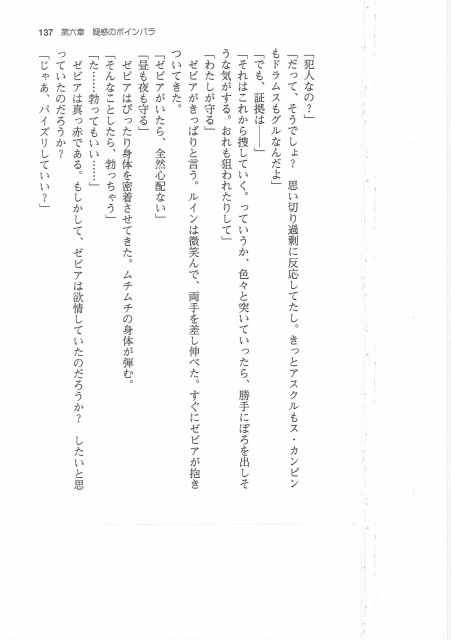 137 第六章 疑惑のボインパラ
「犯人なの？」
「だって、そうでしょ？ 思い切り過剰に反応してたし。きっとアスクルもス・カンピン
もドラムスもグルなんだよ」
「でも、証拠は――」
「それはこれから捜していく。っていうか、色々と突いていったら、勝手にぼろを出しそ
うな気がする。おれも狙われたりして」
「わたしが守る」
ゼビアがきっぱりと言う。ルインは微笑んで、両手を差し伸べた。すぐにゼビアが抱き
ついてきた。
「ゼビアがいたら、全然心配ない」
「昼も夜も守る」
ゼビアはぴったり身体を密着させてきた。ムチムチの身体が弾む。
「そんなことしたら、勃っちゃう」
「た……勃ってもいい……」
ゼビアは真っ赤である。もしかして、ゼビアは欲情していたのだろうか？ したいと思
っていたのだろうか？
「じゃあ、パイズリしていい？」